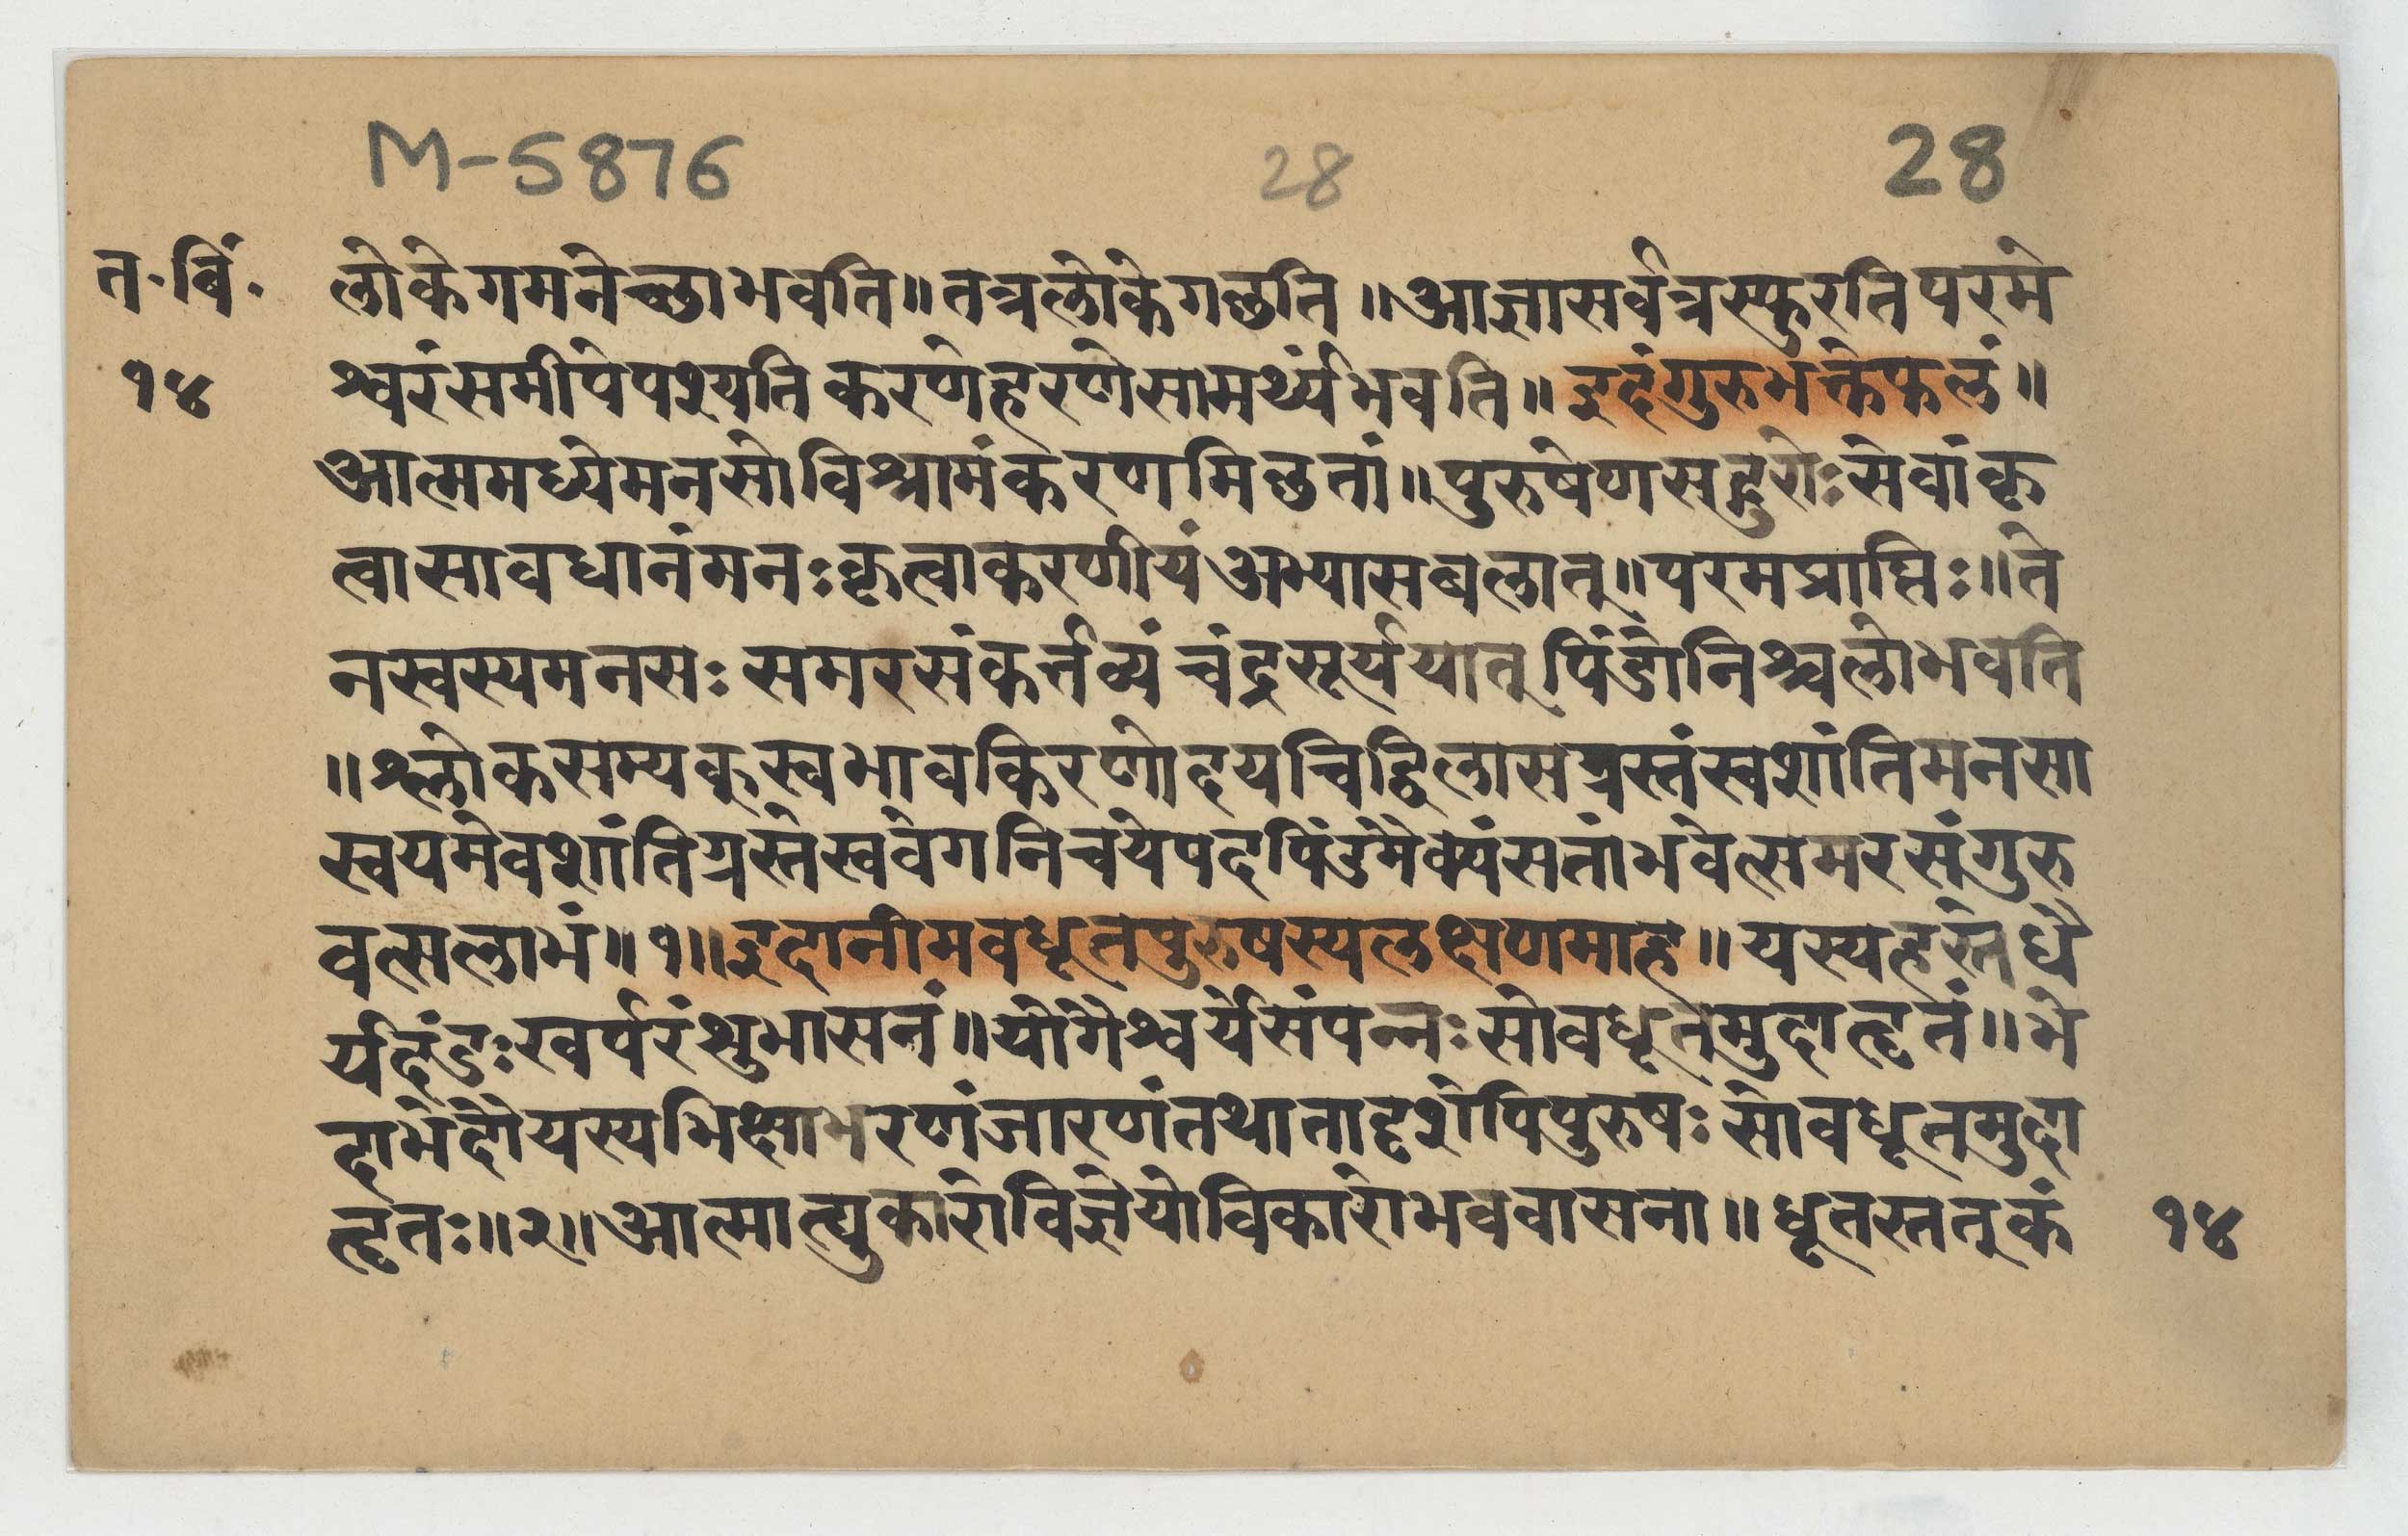 M-5876 28 28
त·बिं· लोकेगमनेच्छाभवति॥तत्रलोकेगछति॥आज्ञासर्वत्रस्फुरतिपरमे
१४ श्वरंसमीपेपश्यतिकरणेहरणेसामर्थ्यंभवति॥इदंगुरुभक्तेफलं॥
आत्ममध्येमनसोविश्रामंकरणमिछतां॥पुरुषेणसद्गुरोःसेवांकृ
त्वासावधानंमनःकृत्वाकरणीयंअभ्यासबलात्॥परमप्राप्तिः॥ते
नस्वस्यमनसःसमरसंकर्त्तव्यंचंद्रसूर्ययात्पिंडोनिश्चलोभवति
॥श्लोकसम्यक्स्वभावकिरणोदयचिद्विलासग्रस्तंस्वशांतिमनसा
स्वयमेवशांतिग्रस्तेस्ववेगनिचयेपदपिंडमैक्यंसतांभवेत्समरसंगुरु
वत्सलाभं॥१॥इदानीमवधूतपुरुषस्यलक्षणमाह॥यस्यहस्तेधै
र्यदंडःखर्परंशुभासनं॥योगैश्वर्यसंपन्नःसोवधूतमुदाहृतं॥भे
दाभेदौयस्यभिक्षाभरणंजारणंतथातादृशोपिपुरुषःसोवधूतमुदा
हृतः॥२॥आत्मात्युकारोविज्ञेयोविकारोभववासना॥धूतस्तत्कं १४